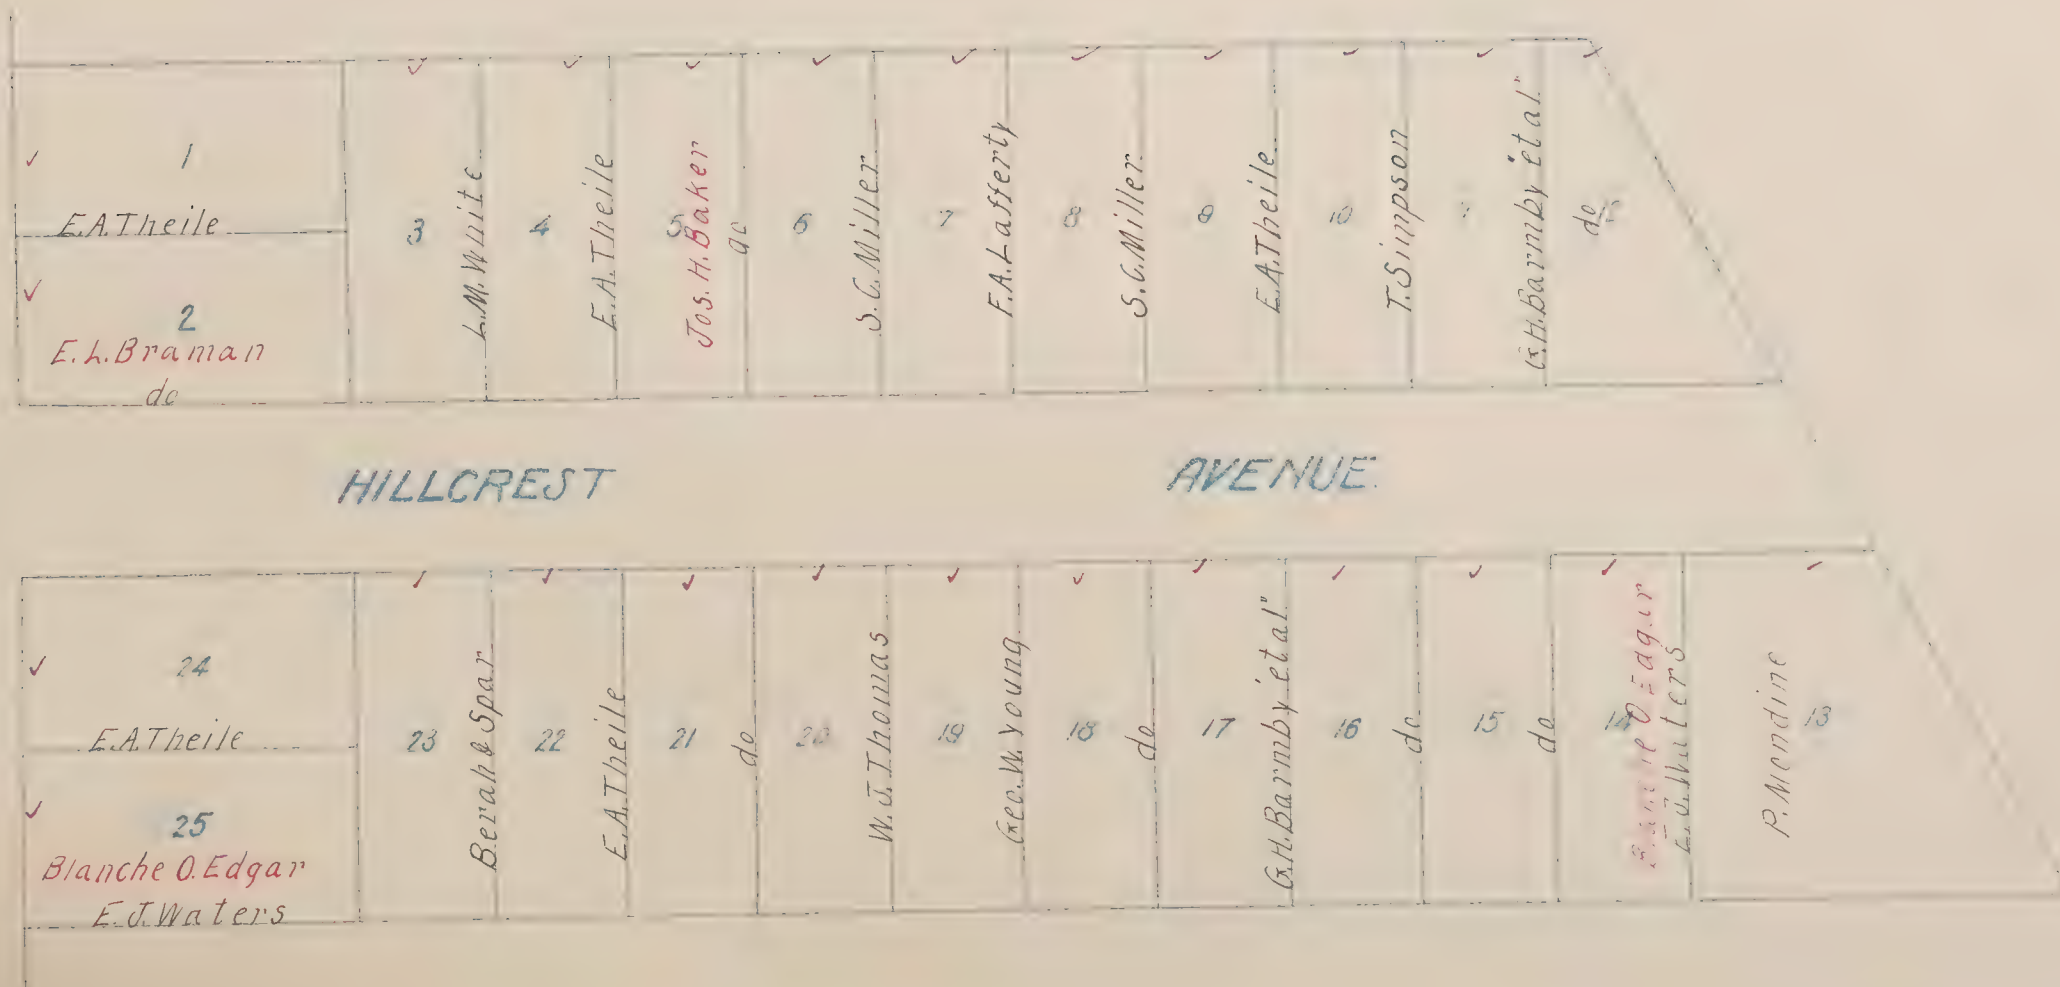 1
E.A.Theile
2
E.L.Braman
do
3
L.M.White
4
E.A.Theile
5
Jos.H.Baker
do
6
S.C.Miller
7
F.A.Lafferty
8
S.C.Miller
9
E.A.Theile
10
T.Simpson
G.H.Barmby "et al"
do
HILLCREST AVENUE.
24
E.A.Theile
25
Blanche O.Edgar
E.J.Waters
23
Berah & Spar
22
E.A.Theile
21
do
20
W.J.Thomas
19
Geo.W.Young
18
do
17
G.H.Barmby "et al"
16
do
15
do
14
Blanche O Edgar
E.J.Waters
P.Mendine
13